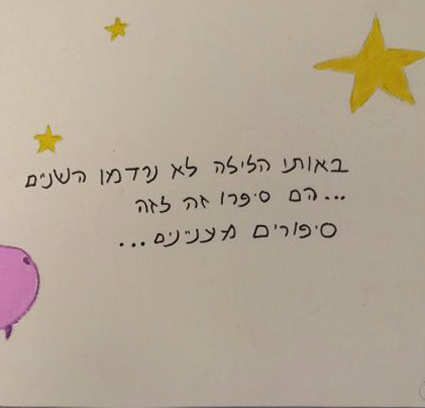 באותו הלילה לא נרדמו השניים
...הם סיפרו זה לזה
סיפורים מעניינים...